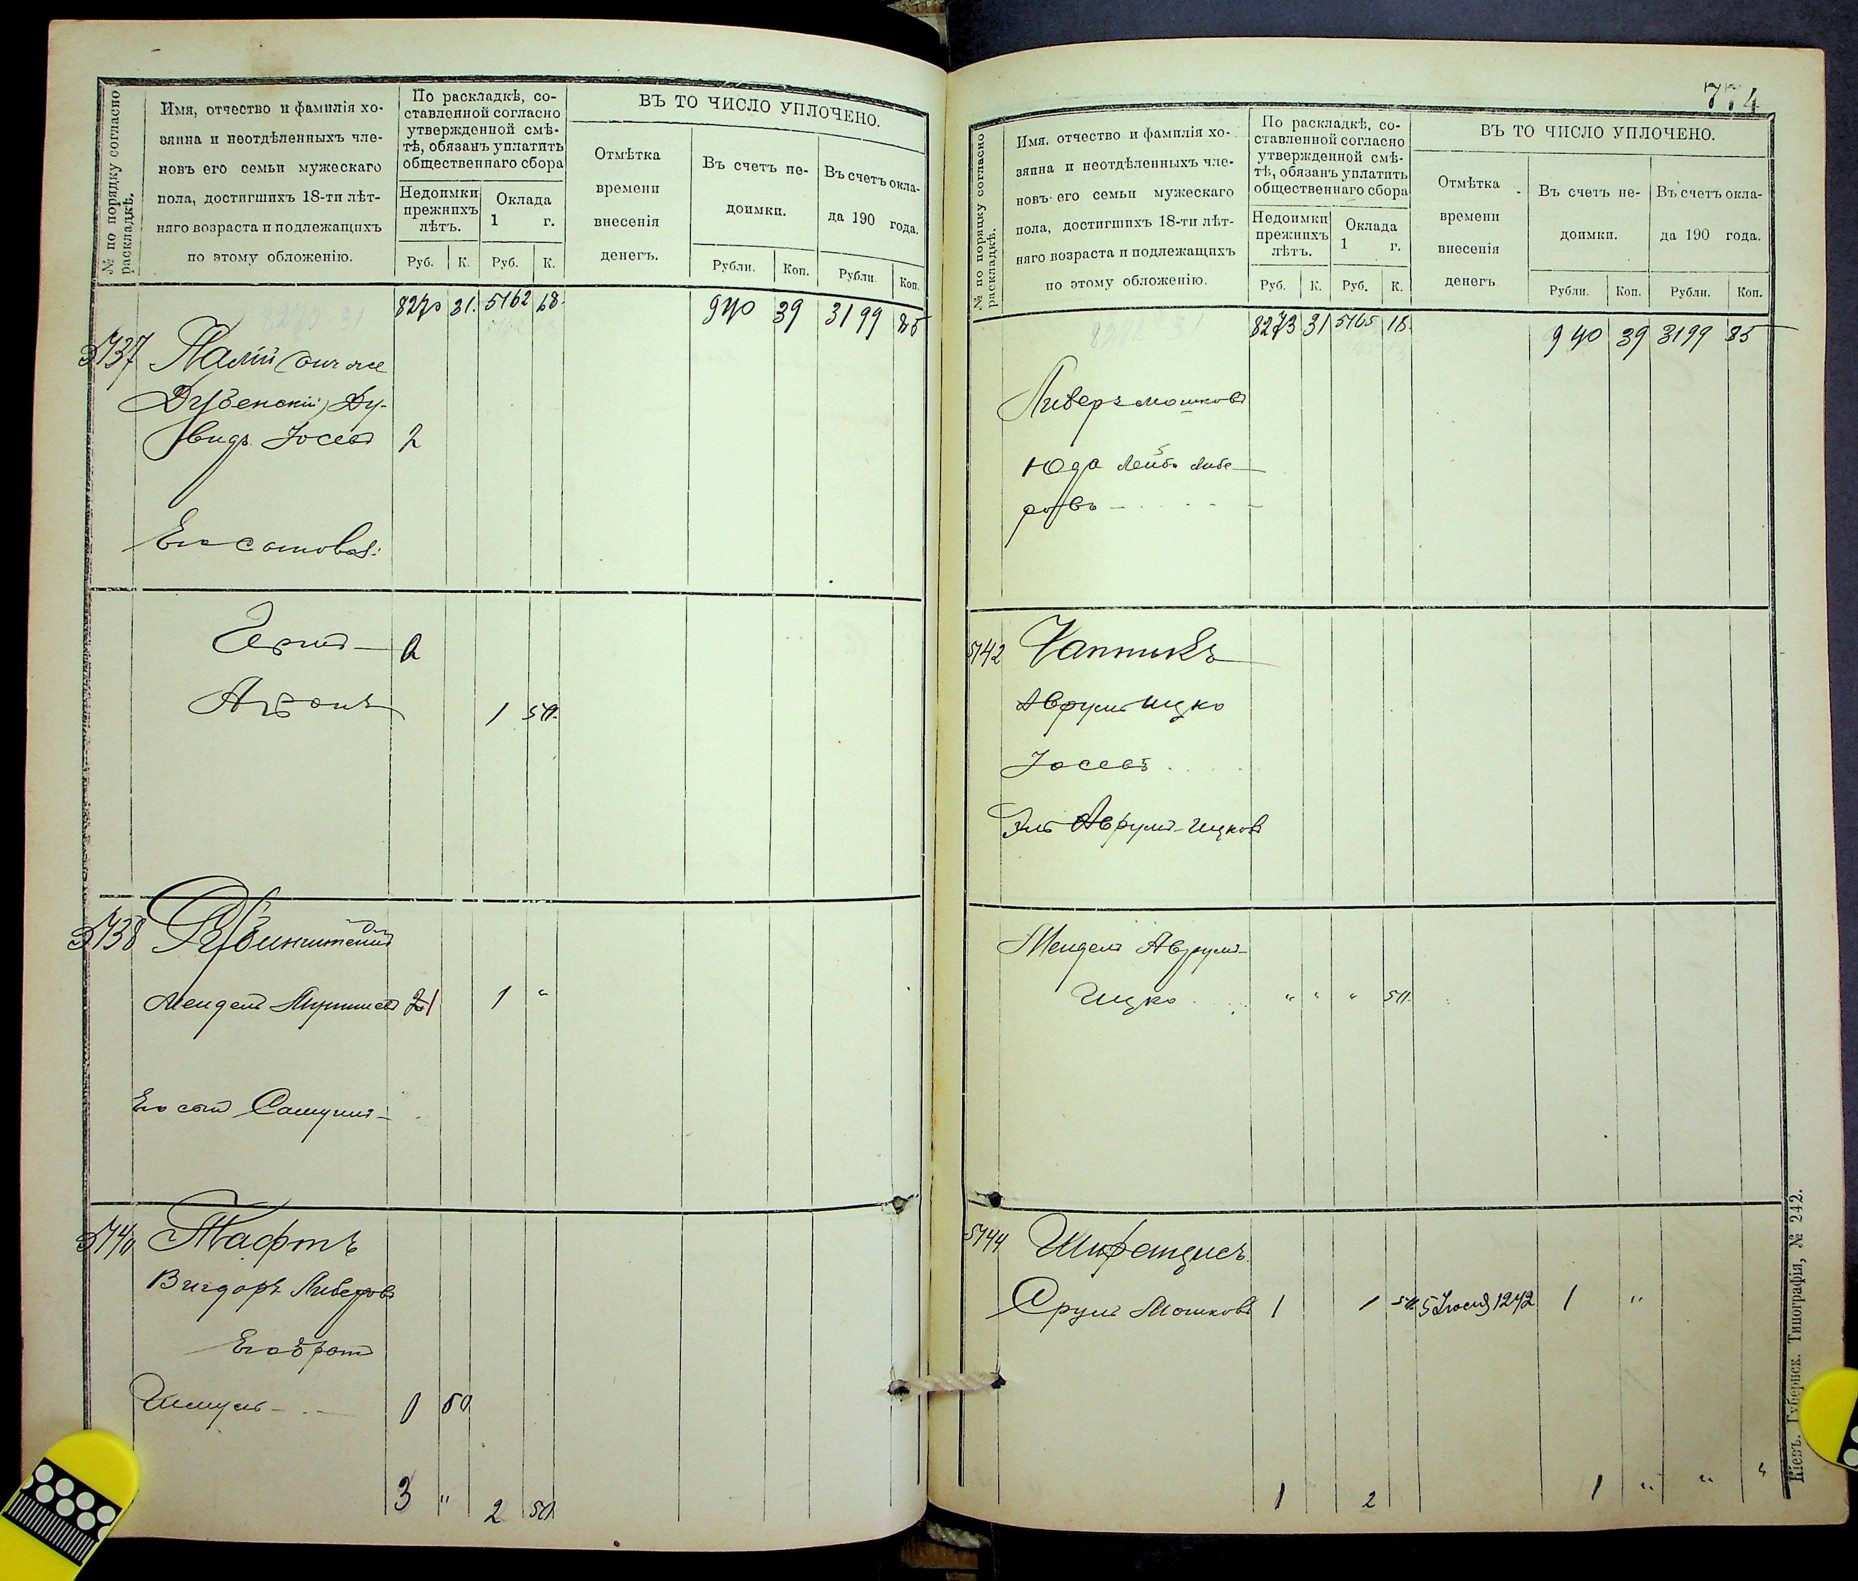 № по порядку согласно раскладкѣ.
Имя, отчество и фамилія хо-
зяина и неотдѣленныхъ чле-
новъ его семьи мужескаго
пола, достигшихъ 18-ти лѣт-
няго возраста и подлежащихъ
по этому обложенію.
По раскладкѣ, со-
ставленной согласно
утвержденной смѣ-
тѣ, обязанъ уплатить
общественнаго сбора
Недоимки
прежнихъ
лѣтъ.
Оклада
1 г.
Руб. К. Руб. К.
ВЪ ТО ЧИСЛО УПЛОЧЕНО.
Отмѣтка
времени
внесенія
денегъ.
Въ счетъ не-
доимки.
Въ счетъ окла-
да 190 года.
Рубли. Коп. Рубли Коп.
8270 31 5162 68 940 39 3199 85
5737 Палій (онъ же
Дубенскій) Ду-
видъ Іосевъ 2
Его сыновья:
Аронъ 1 50
5738
Мендель 1 "
Его сынъ
5740 Тафтъ
Вигдоръ Либеровъ
Его братъ
Шмуль 50
3 " 2 50
774
№ по порядку согласно раскладкѣ.
Имя. отчество и фамилія хо-
зяина и неотдѣленныхъ чле-
новъ его семьи мужескаго
пола, достигшихъ 18-ти лѣт-
няго возраста и подлежащихъ
по этому обложенію.
По раскладкѣ, со-
ставленной согласно
утвержденной смѣ-
тѣ, обязанъ уплатить
общественнаго сбора
Недоимки
прежнихъ
лѣтъ.
Оклада
1 г.
Руб. К. Руб. К.
ВЪ ТО ЧИСЛО УПЛОЧЕНО.
Отмѣтка
времени
внесенія
денегъ
Въ счетъ не-
доимки.
Въ счетъ окла-
да 190 года.
Рубли. Коп. Рубли. Коп.
8273 31 5165 18 940 39 3199 85
Либеръ Мошковъ
Юда Лейбъ Либе-
ровъ
5742 Чапникъ
Аврумъ Ицко
Іосевъ
Эль Аврумъ-Ицковъ
Мендель Аврумъ-
Ицко " " " 50
5744
Сруль Мошковъ 1 1 50 5 1242 1 "
1 2 1 " " "
Кіевъ. Губернск. Типографія, № 242.